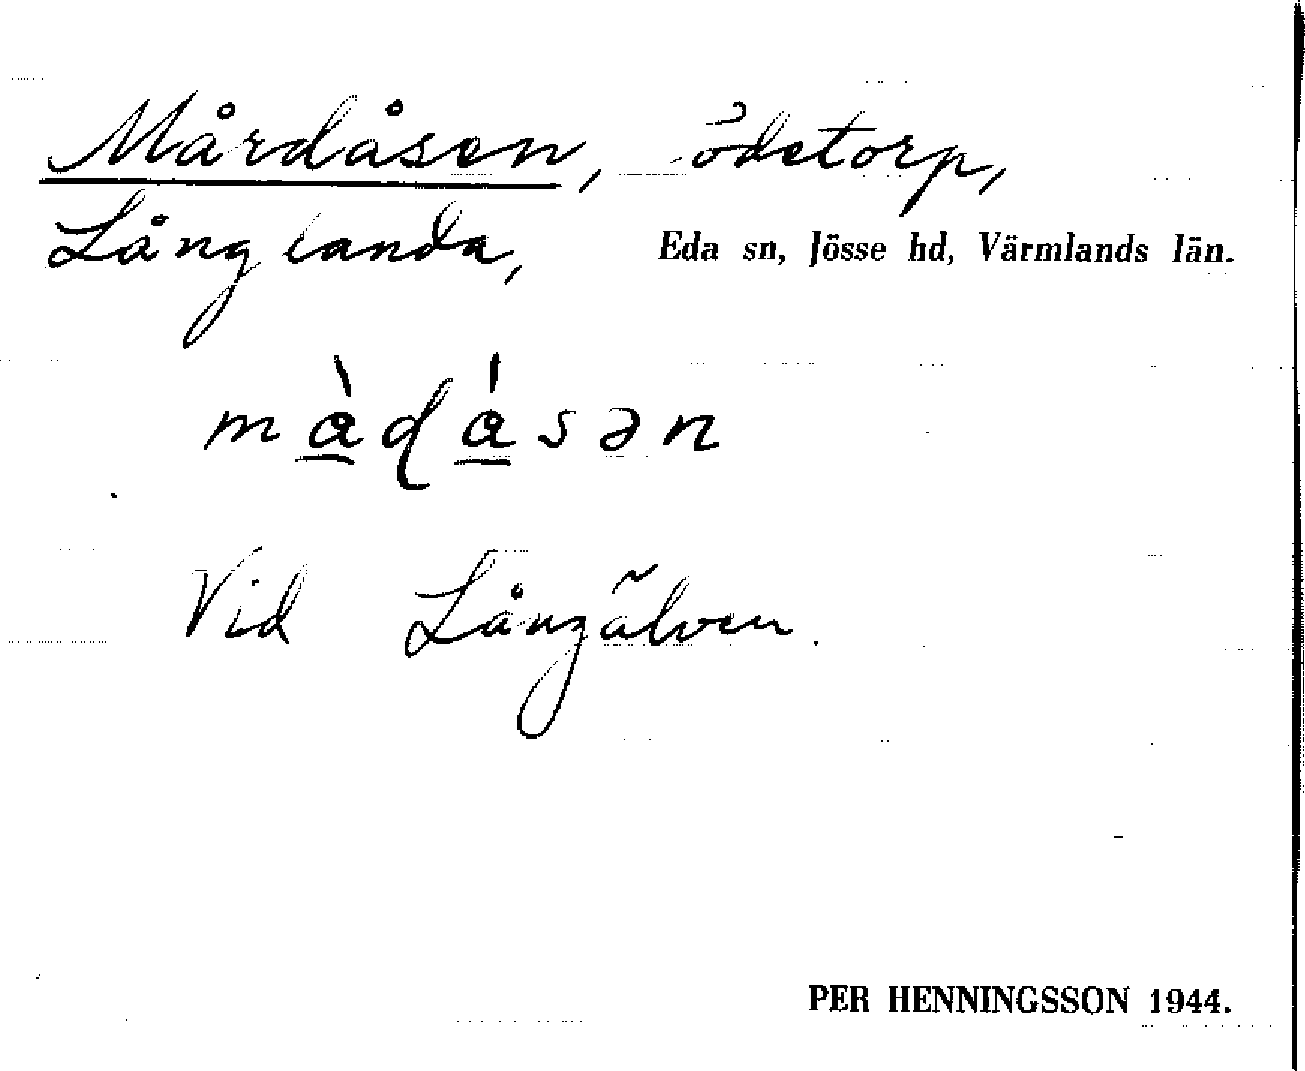 Mårdåsen, ödetorp,
Långlanda, Eda sn, Jösse hd, Värmlands län.
mà̱dá̱sən
Vid Långälven.
PER HENNINGSSON 1944.